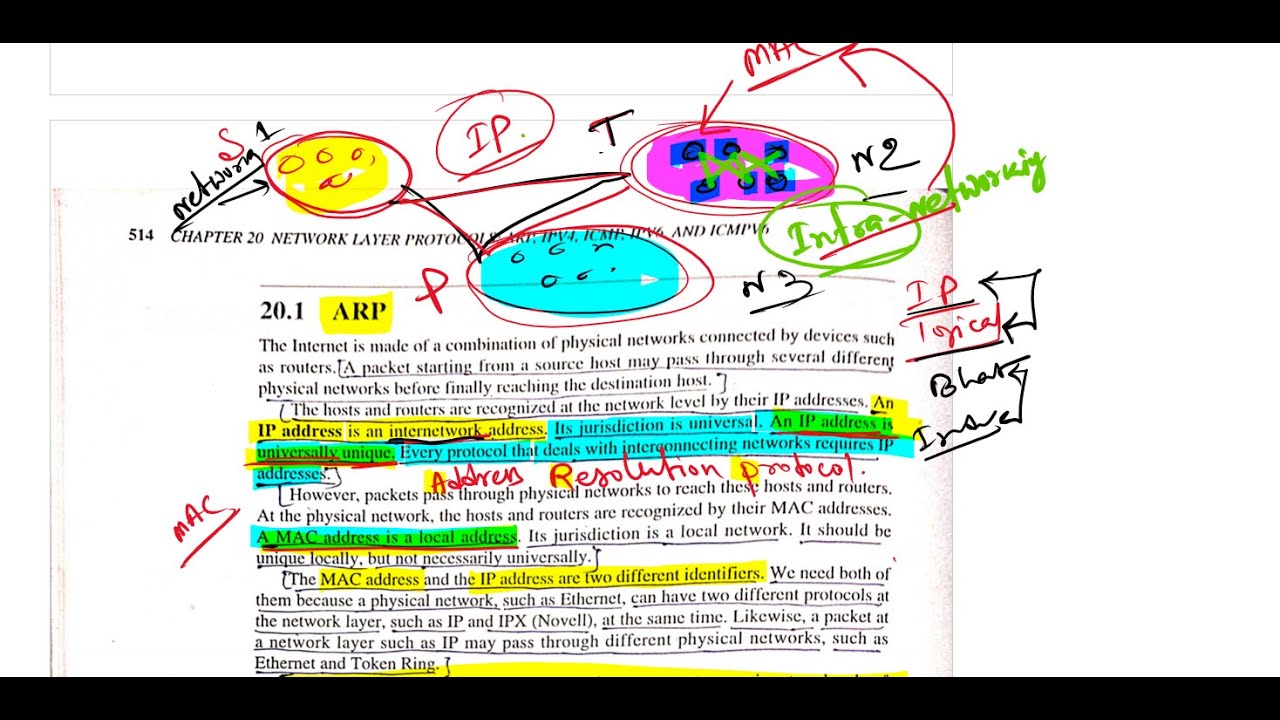 MAC
S
network 1
IP.
T
N2
Intra-networking
514 CHAPTER 20 NETWORK LAYER PROTOCOLS: ARP, IPV4, ICMP, IPV6, AND ICMPV6
P
N3
IP
20.1 ARP
The Internet is made of a combination of physical networks connected by devices such
as routers. A packet starting from a source host may pass through several different
physical networks before finally reaching the destination host.
The hosts and routers are recognized at the network level by their IP addresses. An
IP address is an internetwork address. Its jurisdiction is universal. An IP address is
universally unique. Every protocol that deals with interconnecting networks requires IP
addresses.
Address Resolution Protocol.
However, packets pass through physical networks to reach these hosts and routers.
At the physical network, the hosts and routers are recognized by their MAC addresses.
MAC
A MAC address is a local address. Its jurisdiction is a local network. It should be
unique locally, but not necessarily universally.
The MAC address and the IP address are two different identifiers. We need both of
them because a physical network, such as Ethernet, can have two different protocols at
the network layer, such as IP and IPX (Novell), at the same time. Likewise, a packet at
a network layer such as IP may pass through different physical networks, such as
Ethernet and Token Ring.